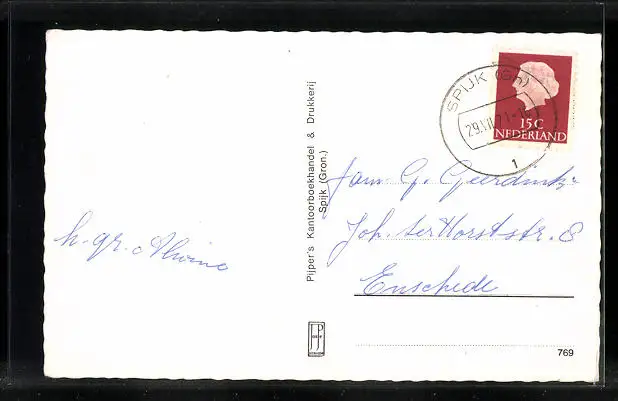 SPIJK (Gn)
29.VII.71
1
15 C
NEDERLAND
Pijper's Kantoorboekhandel & Drukkerij
Spijk (Gron.)
Fam. G. Geerdink
Joh. ter Horststr. 8
Enschede
h. gr.
JP
769